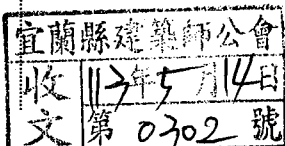 宜蘭縣建築師公會
收文
113年5月14日
第 0302 號